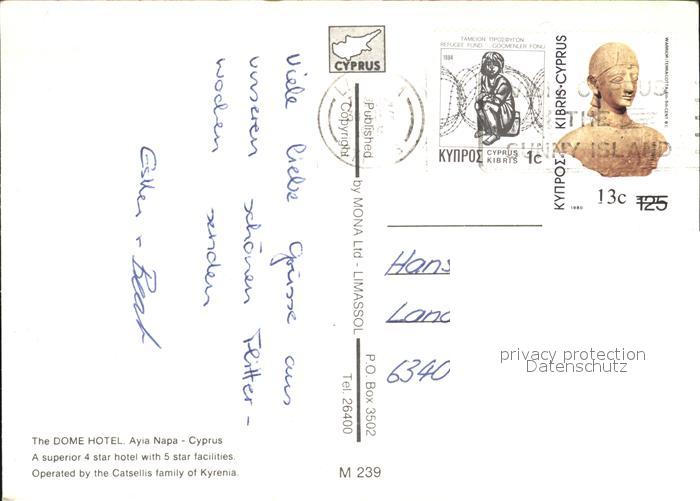 CYPRUS
Viele liebe Grüsse aus
unseren schönen Flitter-
wochen senden
Esther + Beat
Published by MONA Ltd - LIMASSOL P.O. Box 3502
Copyright Tel. 26400
ΤΑΜΕΙΟΝ ΠΡΟΣΦΥΓΩΝ
REFUGEE FUND GÖÇMENLER FONU
1984
ΚΥΠΡΟΣ CYPRUS KIBRIS 1c
ΚΥΠΡΟΣ KIBRIS·CYPRUS
1980
13c 125
THE
SUNNY ISLAND
Hans
Land
6340
privacy protection
Datenschutz
The DOME HOTEL. Ayia Napa - Cyprus
A superior 4 star hotel with 5 star facilities.
Operated by the Catsellis family of Kyrenia.
M 239